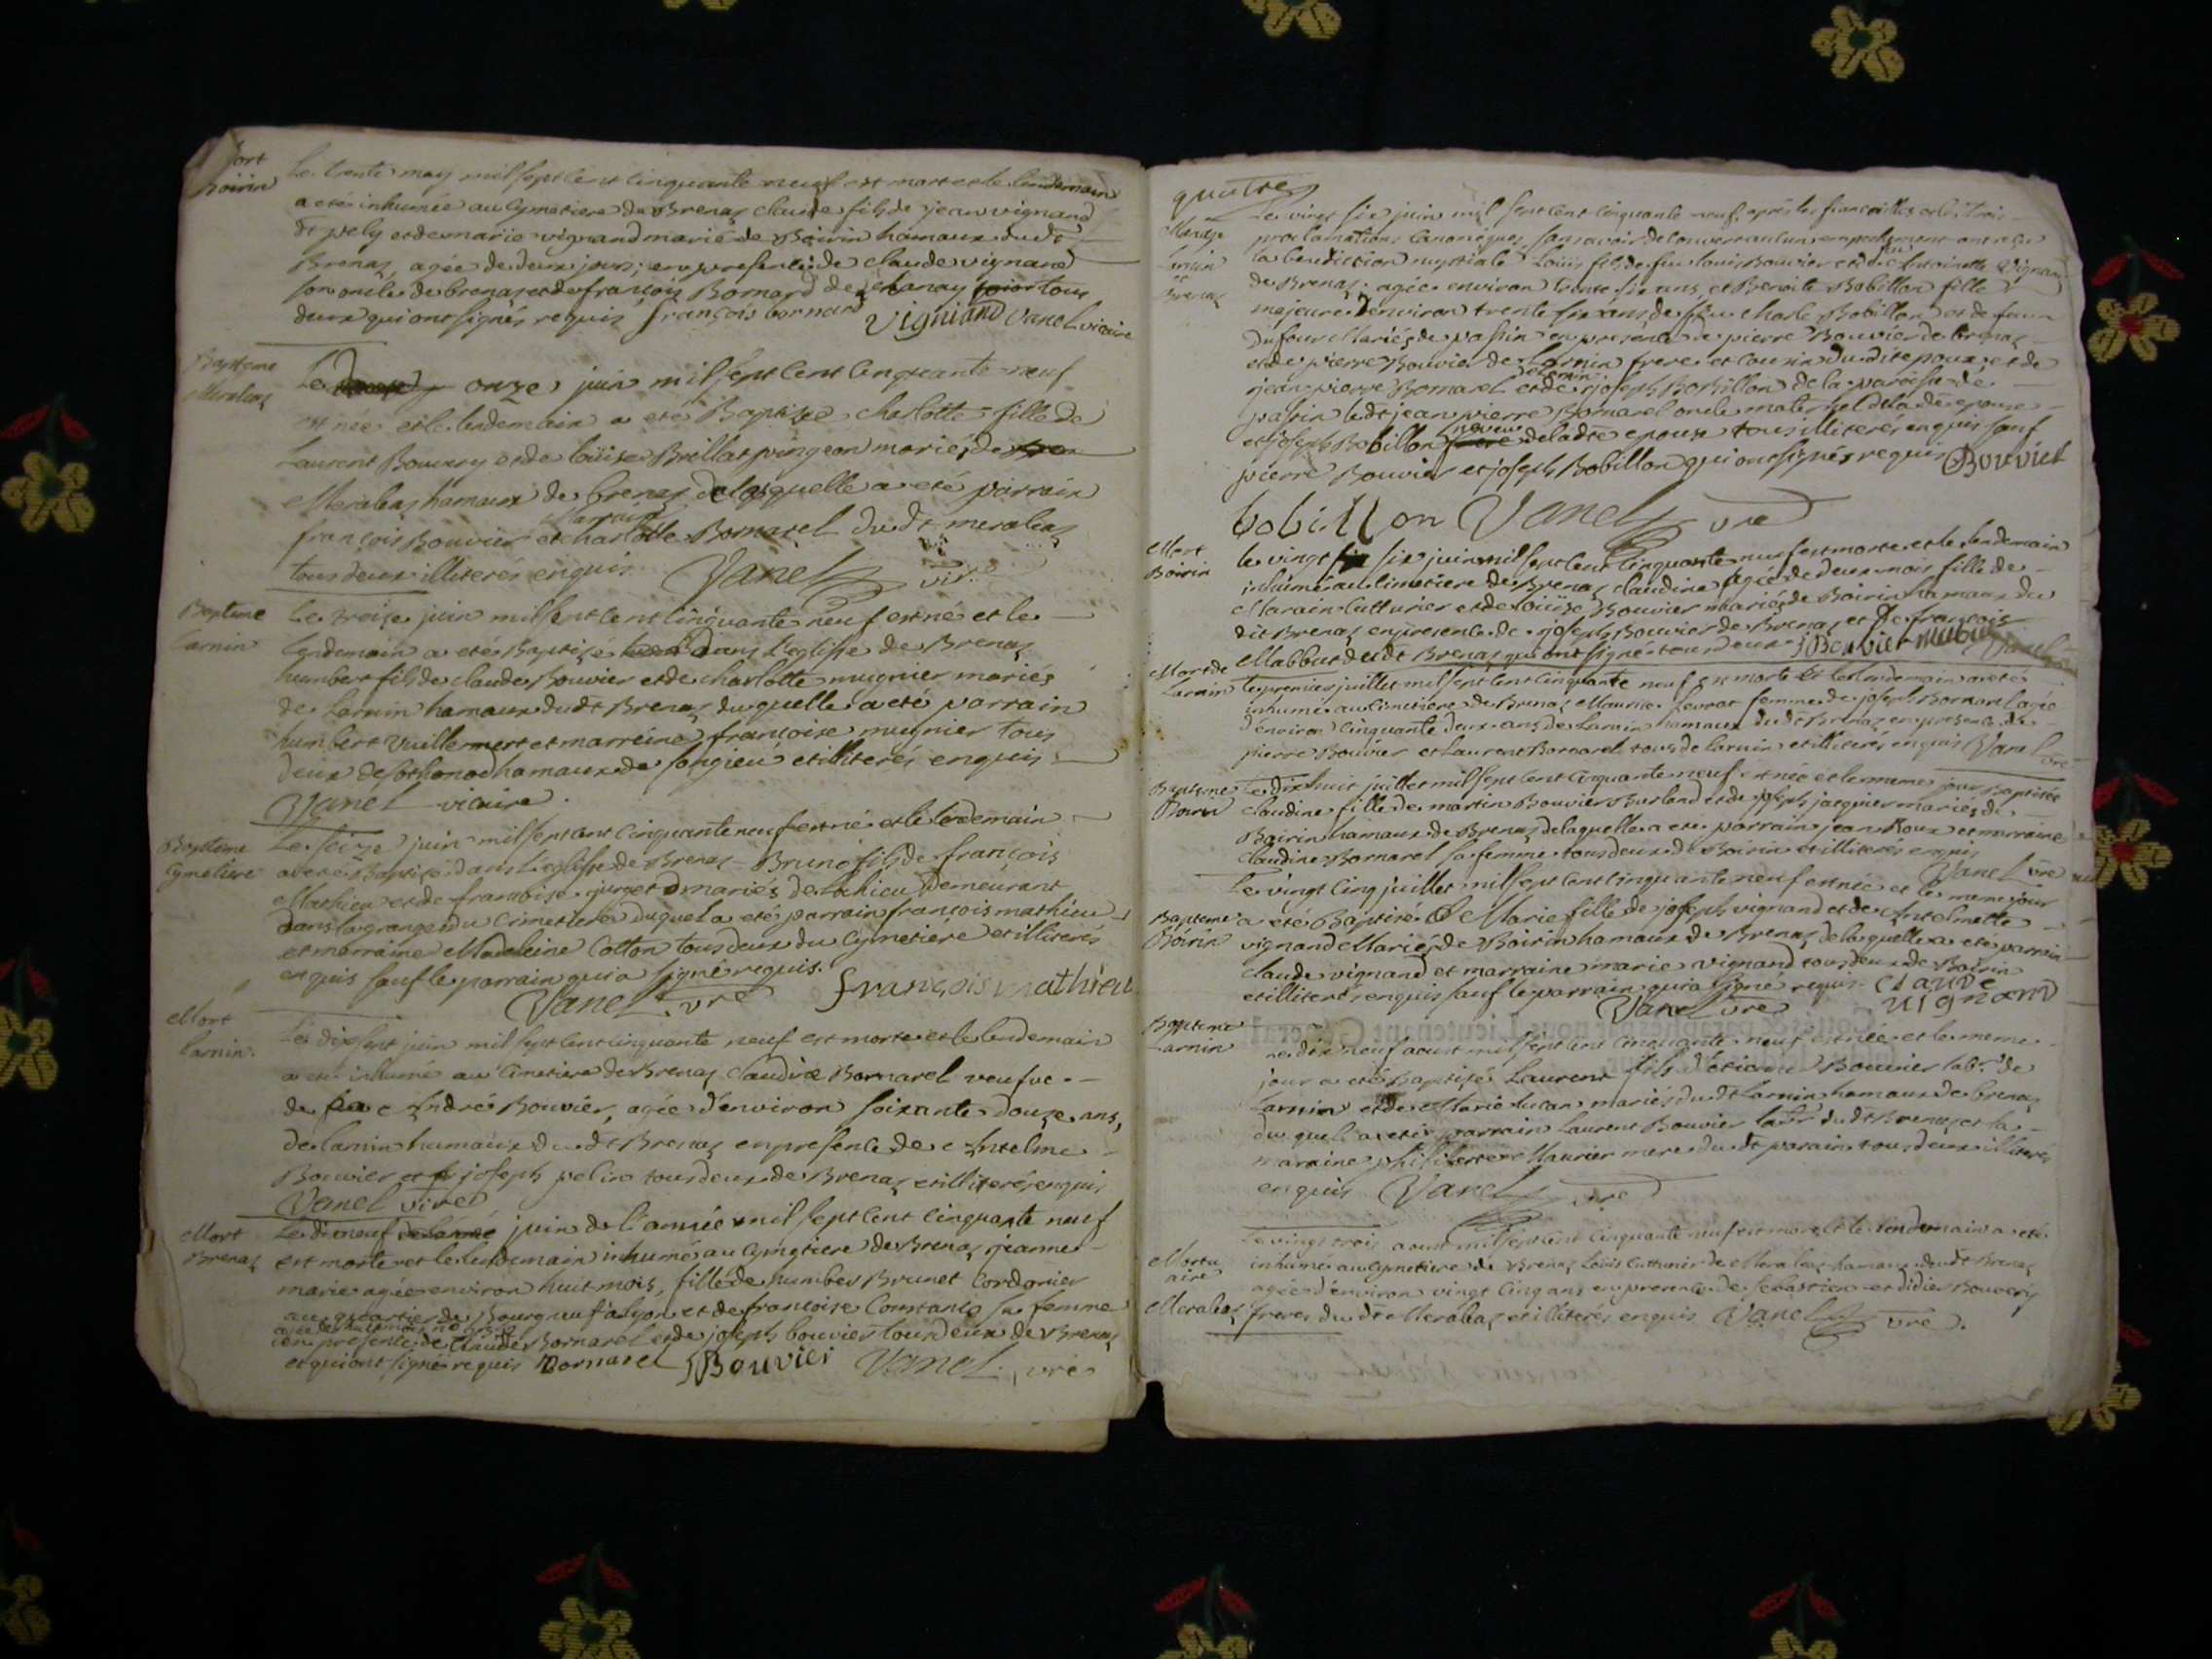 Mort
Boirin
Le trente may mil sept cent cinquante neuf est morte et le lendemain
a eté inhumée au Cymetiere de Brenaz claude fils de jean vignand
dt pely et de marie vignand marié de Boirin hamaux dudt
Brenaz, agée de deux jours; en presence de claude vignand
son oncle de brenaz et de françois Bornard de tous
deux qui ont signés requis françois bornard Vigniand Vanel vicaire
Bapteme
Meraleaz
Le onze juin mil sept cent cinquante neuf
est née et le lendemain a eté Baptisée charlotte fille de
Laurent Bouvery et de loüise Brillat pingeon mariés de
Meraleaz hamaux de brenaz de laquelle a eté parrain
françois Bouvier et marraine charlotte Bornarel dudt meraleaz
tous deux illiterés enquis Vanel vire
Bapteme
Larnin
Le treize juin mil sept cent cinquante neuf est né et le
lendemain a eté Baptisé dans L'eglisse de Brenaz
humbert fils de claude Bouvier et de charlotte mugnier mariés
de Larnin hamaux dudt Brenaz duquelle a eté parrain
humbert Vuillermet et marreine françoise mugnier tous
deux de sothonod hamaux de songieu et illiterés enquis
Vanel vicaire.
Bapteme
Cymetiere
Le seize juin mil sept cent cinquante neuf est né et le lendemain
a eté Baptisé dans L'eglisse de Brenaz Bruno fils de françois
Mathieu et de françoise mariés de Lochieu Demeurant
Dans la grange du Cimettere duquel a eté parrain françois mathieu
et marraine Madeleine Cotton tous deux du Cymetiere et illiterés
enquis sauf le parrain qui a signé requis.
Vanel. vre françois mathieu
Mort
Larnin.
Le dix sept juin mil sept cent cinquante neuf est morte et le lendemain
a eté inhumé au Cimetiere de Brenaz claudine Bornarel veufve
de feu André Bouvier, agée d'environ soixante douze ans,
de larnin hamaux dudt Brenaz en presence de Antelme
Bouvier et joseph pelin tous deux de Brenaz et illiterés enquis
Vanel vire
Mort
Brenaz
Le dineuf juin de l'année mil sept cent cinquante neuf
est morte et le lendemain inhumé au Cymetiere de Brenaz jeanne
marie agée environ huit mois, fille de humber Brunet Cordonier
au quartier de Bourgneuf a lyon et de françoise Constance sa femme
en presence de Claude Bornarel et de joseph bouvier tous deux de Brenaz
et qui ont signé requis Bornarel JBouvier Vanel. vre
quatre
Mariage
Larnin
et
Brenaz
Le vingt six juin mil sept cent cinquante neuf, après les fiancailles et les trois
proclamations Canoniques sans avoir decouvert aucun empechement ont reçu
la benediction nuptiale Louis fils de feu louis Bouvier et de Antoinette Vignand
de Brenaz agée environ trente six ans, et Benoite Bobillon fille
majeure d'environ trente six ans de feu charle Bobillon et de
Dufour Mariés de passin en presence de pierre Bouvier de brenaz
et de pierre Bouvier de Larnin frere et cousin dudit epoux et de
jean pierre Bornarel et de joseph Bobillon de la paroisse de
passin ledt jean pierre Bornarel oncle maternel de la dte epouse
et joseph Bobillon neveu de la dte epouse tous illiterés enquis sauf
pierre Bouvier et joseph Bobillon qui ont signés requis Bouvier
bobillon Vanel vre
Mort
Boirin
le vingt six juin mil sept cent cinquante neuf est morte et le lendemain
inhumé au Cimetiere de Brenaz claudine agée de deux mois fille de
Marain Cutturier et de Loüise Bouvier mariés de Boirin hamaux du
dit Brenaz en presence de joseph Bouvier de Brenaz et de françois
Mabbut dudt Brenaz qui ont signé tous deux JBouvier Vanel
Mort de
Larnin
Le premier juillet mil sept cent cinquante neuf est morte et le lendemain a eté
inhumé au Cimetiere de Brenaz Maurice femme de joseph Bornarel agée
d'environ cinquante deux ans de Larnin hamaux dudt Brenaz en presence de
pierre Bouvier et Laurent Bornarel tous de larnin et illiterés enquis Vanel vre
Bapteme
Boirin
Le dixhuit juillet mil sept cent cinquante neuf est née et le meme jour Baptisée
claudine fille de martin Bouvier Burland et de mariés de
Boirin hamaux de Brenaz de laquelle a eté parrain jean Roux et marraine
claudine Bornarel sa femme tous deux de Boirin et illiterés enquis
Vanel vre
Bapteme
Boirin
Le vingt cinq juillet mil sept cent cinquante neuf est née et le meme jour
a eté Baptisé Marie fille de joseph vignand et de Antelmette
vignand Mariés de Boirin hamaux de Brenaz de laquelle a eté parrain
claude vignand et marraine marie vignand tous deux de Boirin
et illiterés enquis sauf le parrain qui a signé requis claude
Vanel vre vignand
Bapteme
Larnin
Le dix neuf aoust mil sept cent cinquante neuf est née et le meme
jour a eté Baptisé Laurent fils d'étienne Bouvier labr. de
Larnin et de Marie lucan mariés dudt Larnin hamaux de brenaz
du quel a eté parrain Laurent Bouvier labr dudt Brenaz et la
maraine philiberte Maurier mere dudt parain tous deux illiterés
enquis Vanel vre
Mortu
aire
Meraleaz
Le vingt trois aoust mil sept cent cinquante neuf est mort et le lendemain a eté
inhumé au Cymetiere de Brenaz Loüis Cutturier de Meraleaz hamaux dudt Brenaz
agée d'environ vingt cinq ans en presence de sebastien et didier Bouvery
freres dudt Meraleaz et illiterés enquis Vanel vre.